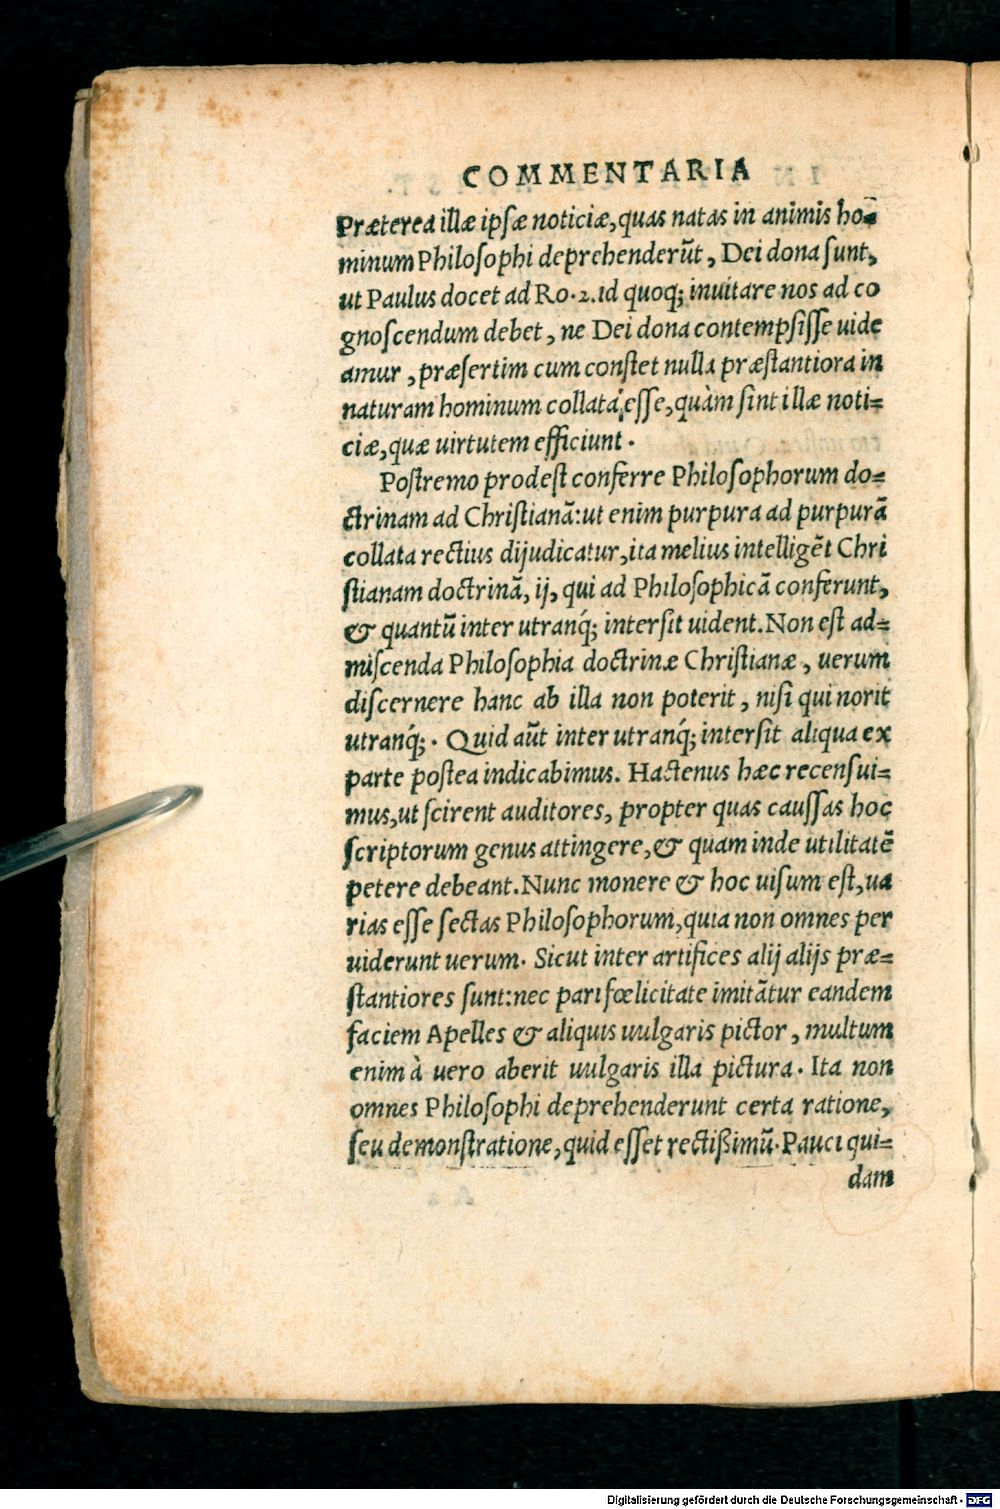 COMMENTARIA
Præterea illæ ipsæ noticiæ, quas natas in animis ho-
minum Philosophi deprehenderũt, Dei dona sunt,
ut Paulus docet ad Ro. 2. id quoq; inuitare nos ad co
gnoscendum debet, ne Dei dona contempsisse uide
amur, præsertim cum constet nulla præstantiora in
naturam hominum collata esse, quàm sint illæ noti-
ciæ, quæ uirtutem efficiunt.
Postremo prodest conferre Philosophorum do-
ctrinam ad Christianã: ut enim purpura ad purpurã
collata rectius dijudicatur, ita melius intelligẽt Chri
stianam doctrinã, ij, qui ad Philosophicã conferunt,
& quantũ inter utranq́; intersit uident. Non est ad-
miscenda Philosophia doctrinæ Christianæ, uerum
discernere hanc ab illa non poterit, nisi qui norit
utranq́;. Quid aũt inter utranq́; intersit aliqua ex
parte postea indicabimus. Hactenus hæc recensui-
mus, ut scirent auditores, propter quas caussas hoc
scriptorum genus attingere, & quam inde utilitatẽ
petere debeant. Nunc monere & hoc uisum est, ua
rias esse sectas Philosophorum, quia non omnes per
uiderunt uerum. Sicut inter artifices alij alijs præ-
stantiores sunt: nec pari fœlicitate imitãtur eandem
faciem Apelles & aliquis uulgaris pictor, multum
enim à uero aberit uulgaris illa pictura. Ita non
omnes Philosophi deprehenderunt certa ratione,
seu demonstratione, quid esset rectißimũ. Pauci qui-
dam
Digitalisierung gefördert durch die Deutsche Forschungsgemeinschaft - DFG